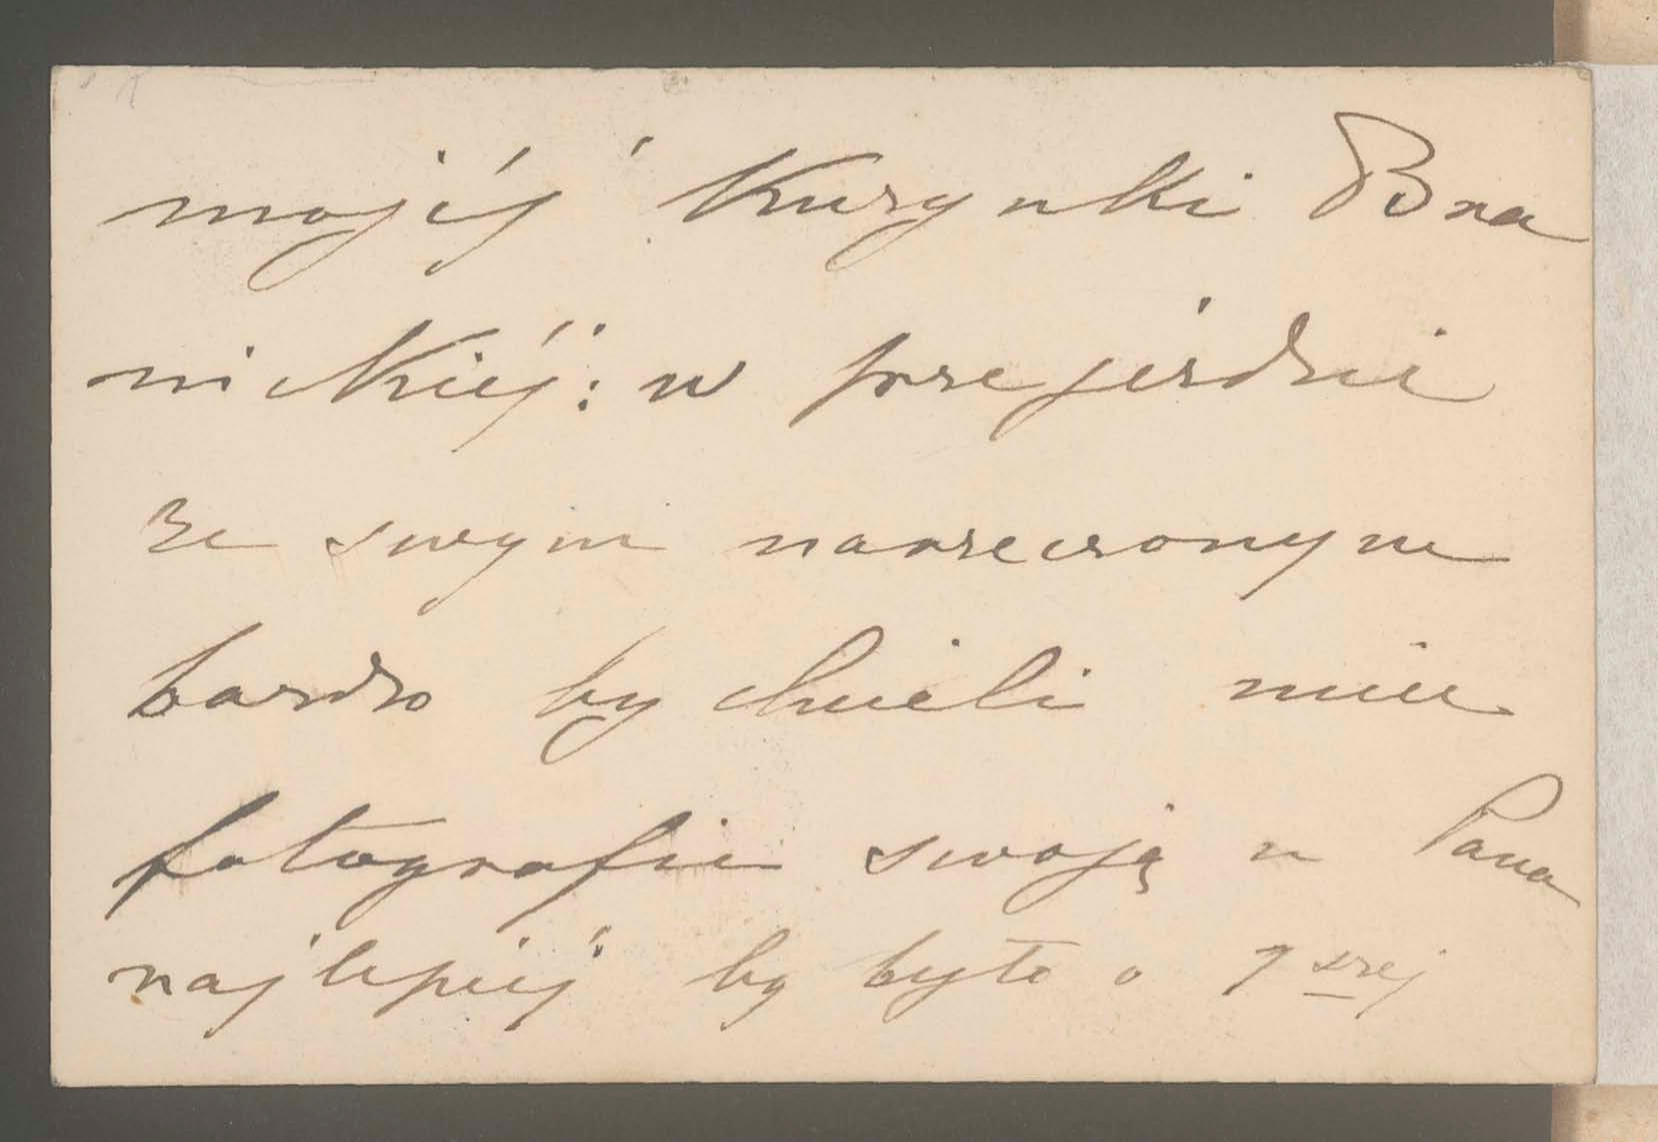 mojéj Kuzynki Bra
nickiéj: w przejeździe
ze swym narzeczonym
bardzo by chcieli mieć
fotografie swoją u Pana
najlepiéj by było o 1szej